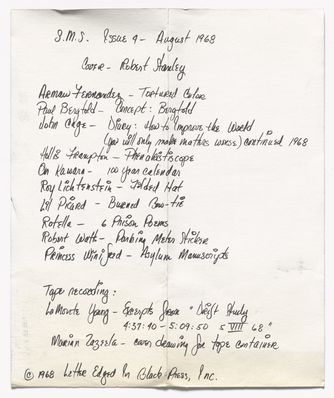 S.M.S. Issue 4 - August 1968
Cover - Robert Stanley
Arman Fernandez - Tortured Color
Paul Bergtold - Concept: Bergtold
John Cage - Diary: How to Improve the World
(you will only make matters worse) continued 1968
Hollis Frampton - Phenakistiscope
On Kawara - 100 year calendar
Roy Lichtenstein - Folded Hat
Lil Picard - Burned Bow-tie
Rotella - 6 Prison Poems
Robert Watts - Parking Meter Sticker
Princess Winifred - Asylum Manuscripts
Tape recording:
LaMonte Young - Excerpts from "Drift Study
4:37:40 - 5:09:50 5 VIII 68"
Marian Zazeela - cover drawing for tape container
© 1968 Letter Edged In Black Press, Inc.